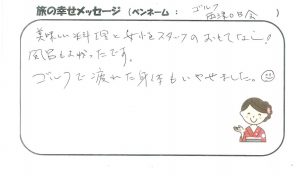 旅の幸せメッセージ (ペンネーム： ゴルフ
西澤0日会 )
美味しい料理と女性スタッフのおもてなし！
風呂もよかったです。
ゴルフで疲れた身体もいやせました。